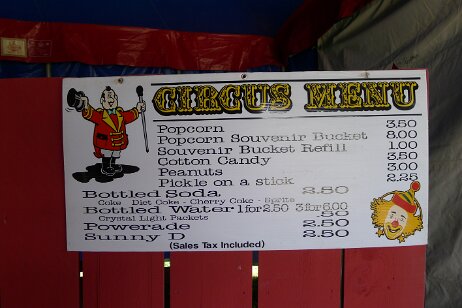 CIRCUS MENU
Popcorn 3.50
Popcorn Souvenir Bucket 8.00
Souvenir Bucket Refill 1.00
Cotton Candy 3.50
Peanuts 3.00
Pickle on a stick 2.25
Bottled Soda 2.50
Coke Diet Coke - Cherry Coke - Sprite
Bottled Water 1 for 2.50 3 for 6.00
Crystal Light Packets .50
Powerade 2.50
Sunny D 2.50
(Sales Tax Included)